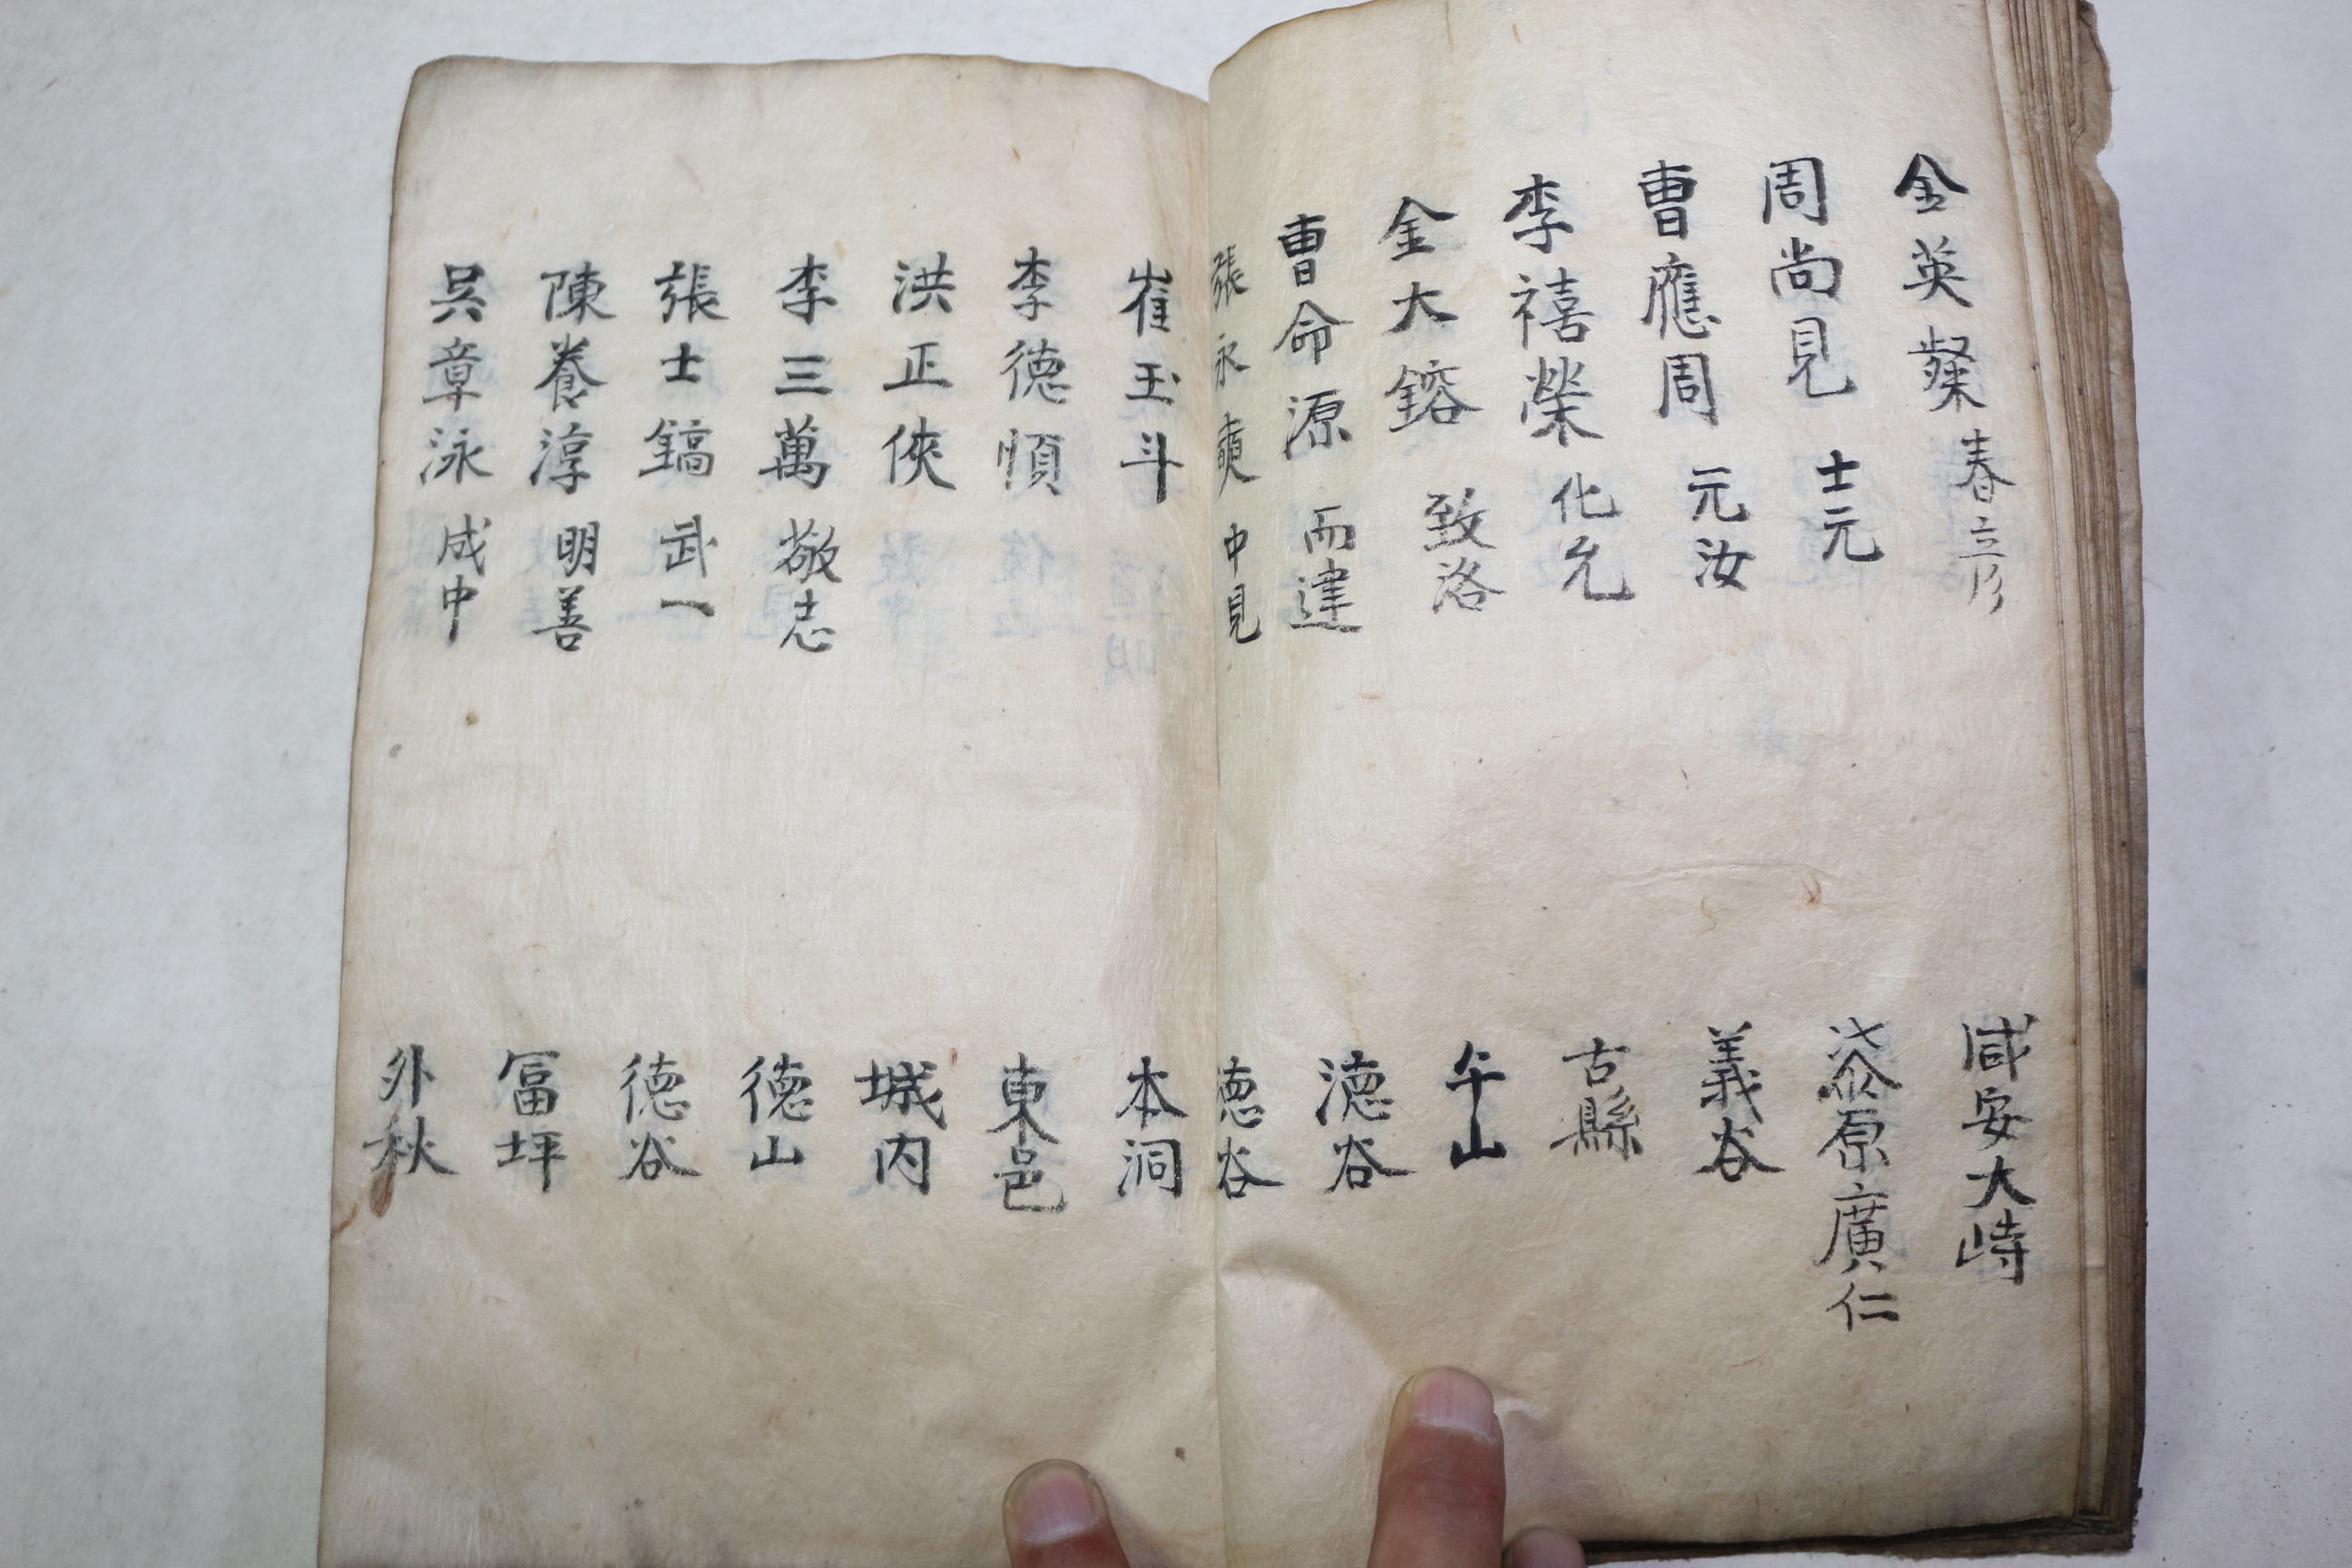 金英粲 春彦 咸安大峙
周尚見 士元 柒原廣仁
曺應周 元汝 義谷
李禧榮 化允 古縣
金大鎔 致洛 午山
曺命源 而達 德谷
張永奭 中見 德谷
崔玉斗 本洞
李德愼 東邑
洪正俠 城内
李三萬 敬志 德山
張士鎬 武一 德谷
陳養淳 明善 冨坪
吳章泳 成中 外秋